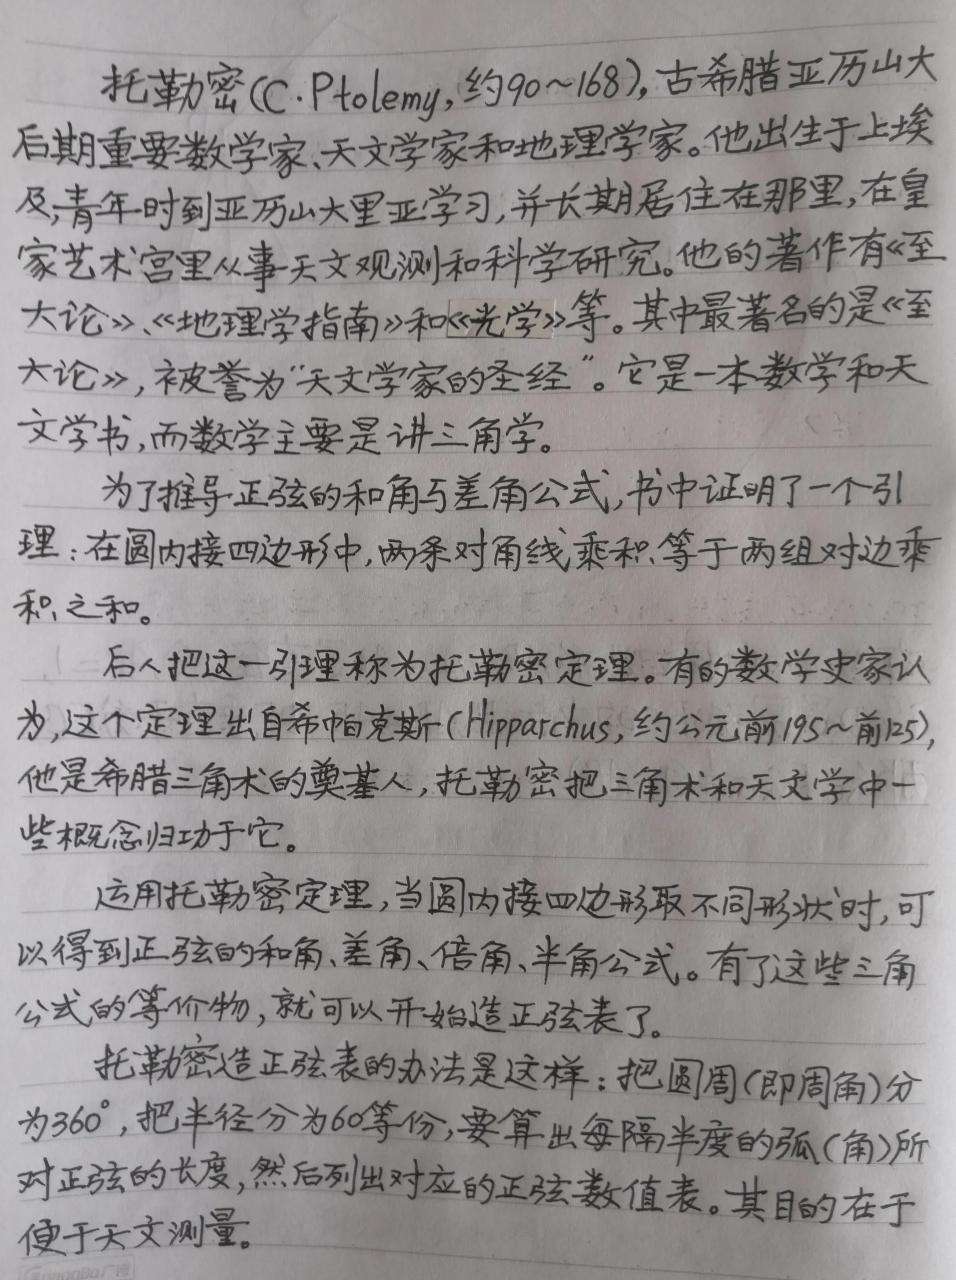 托勒密(C·Ptolemy,约90~168),古希腊亚历山大
后期重要数学家、天文学家和地理学家。他出生于上埃
及,青年时到亚历山大里亚学习,并长期居住在那里,在皇
家艺术宫里从事天文观测和科学研究。他的著作有《至
大论》、《地理学指南》和《光学》等。其中最著名的是《至
大论》,被誉为“天文学家的圣经”。它是一本数学和天
文学书,而数学主要是讲三角学。
为了推导正弦的和角与差角公式,书中证明了一个引
理:在圆内接四边形中,两条对角线乘积等于两组对边乘
积之和。
后人把这一引理称为托勒密定理。有的数学史家认
为,这个定理出自希帕克斯(Hipparchus,约公元前195~前125),
他是希腊三角术的奠基人,托勒密把三角术和天文学中一
些概念归功于它。
运用托勒密定理,当圆内接四边形取不同形状时,可
以得到正弦的和角、差角、倍角、半角公式。有了这些三角
公式的等价物,就可以开始造正弦表了。
托勒密造正弦表的办法是这样:把圆周(即周角)分
为360°,把半径分为60等份,要算出每隔半度的弧(角)所
对正弦的长度,然后列出对应的正弦数值表。其目的在于
便于天文测量。